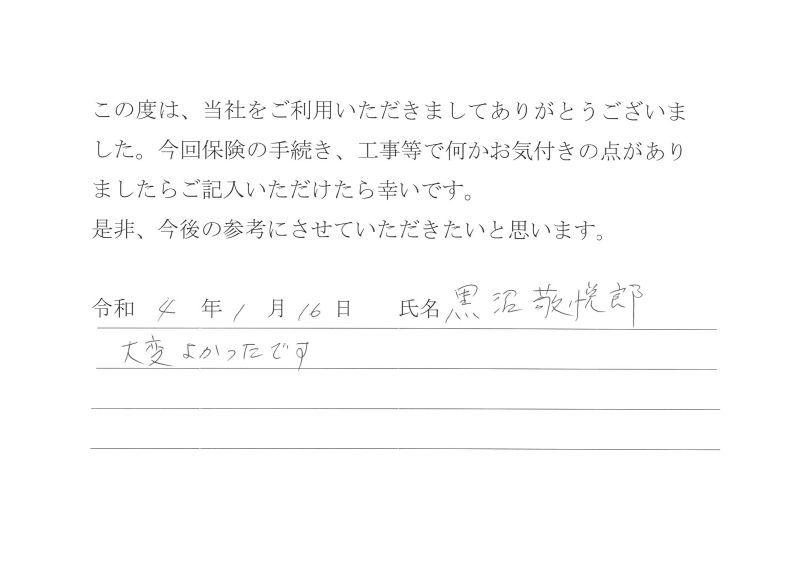 この度は、当社をご利用いただきましてありがとうございま
した。今回保険の手続き、工事等で何かお気付きの点があり
ましたらご記入いただけたら幸いです。
是非、今後の参考にさせていただきたいと思います。
令和 4 年 1 月 16 日 氏名 黒沼 敬悦郎
大変よかったです